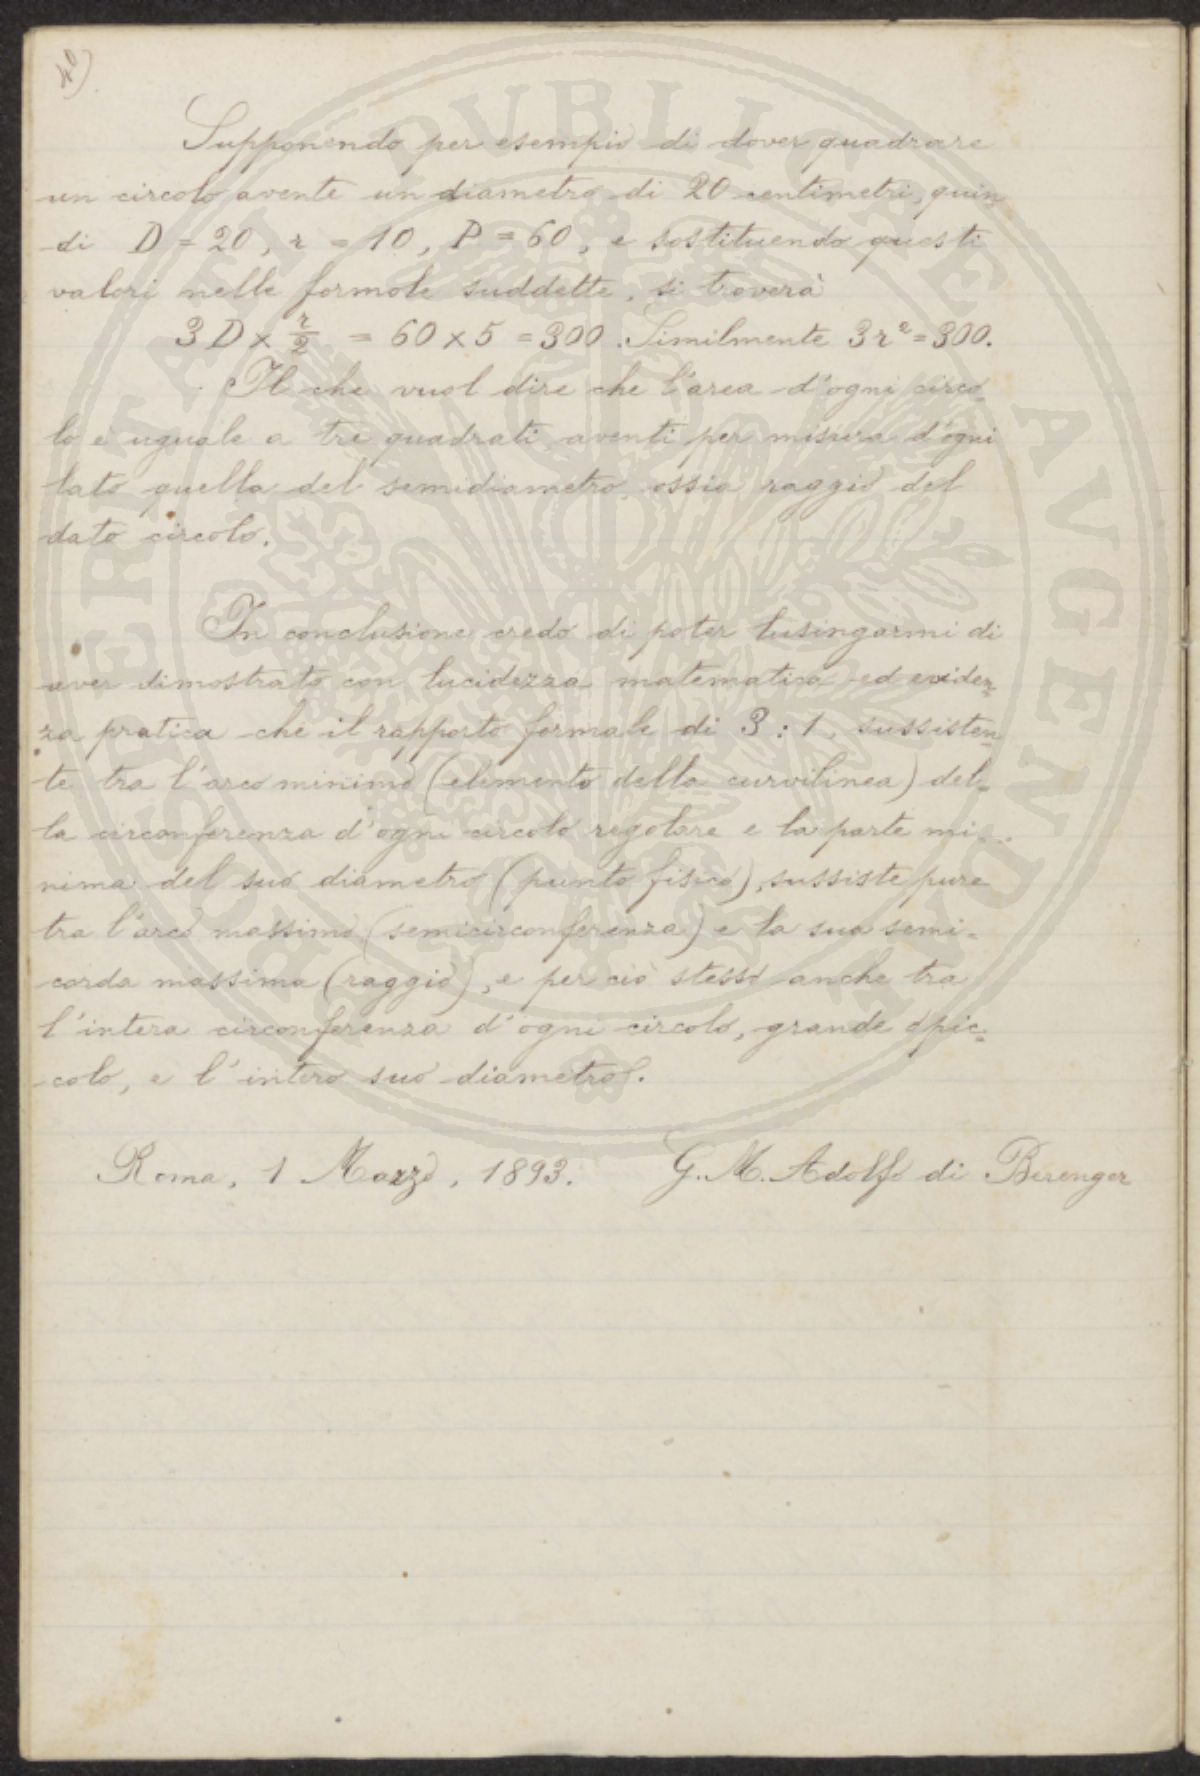 40)
Supponendo per esempio di dover quadrare
un circolo avente un diametro di 20 centimetri, quin
di D = 20, r = 10, P = 60, e sostituendo questi
valori nelle formole suddette, si troverà
3D × r/2 = 60 × 5 = 300. Similmente 3r² = 300.
Il che vuol dire che l'area d'ogni circo
lo è uguale a tre quadrati aventi per misura d'ogni
lato quella del semidiametro ossia raggio del
dato circolo.
In conclusione credo di poter lusingarmi di
aver dimostrato con lucidezza matematica ed eviden=
za pratica che il rapporto formale di 3 : 1, sussisten=
te tra l'arco minimo (elemento della curvilinea) del=
la circonferenza d'ogni circolo regolare e la parte mi=
nima del suo diametro (punto fisico), sussiste pure
tra l'arco massimo (semicirconferenza) e la sua semi=
corda massima (raggio), e per ciò stesso anche tra
l'intera circonferenza d'ogni circolo, grande o pic=
colo, e l'intero suo diametro.
Roma, 1 Marzo, 1893. G. M. Adolfo di Berenger